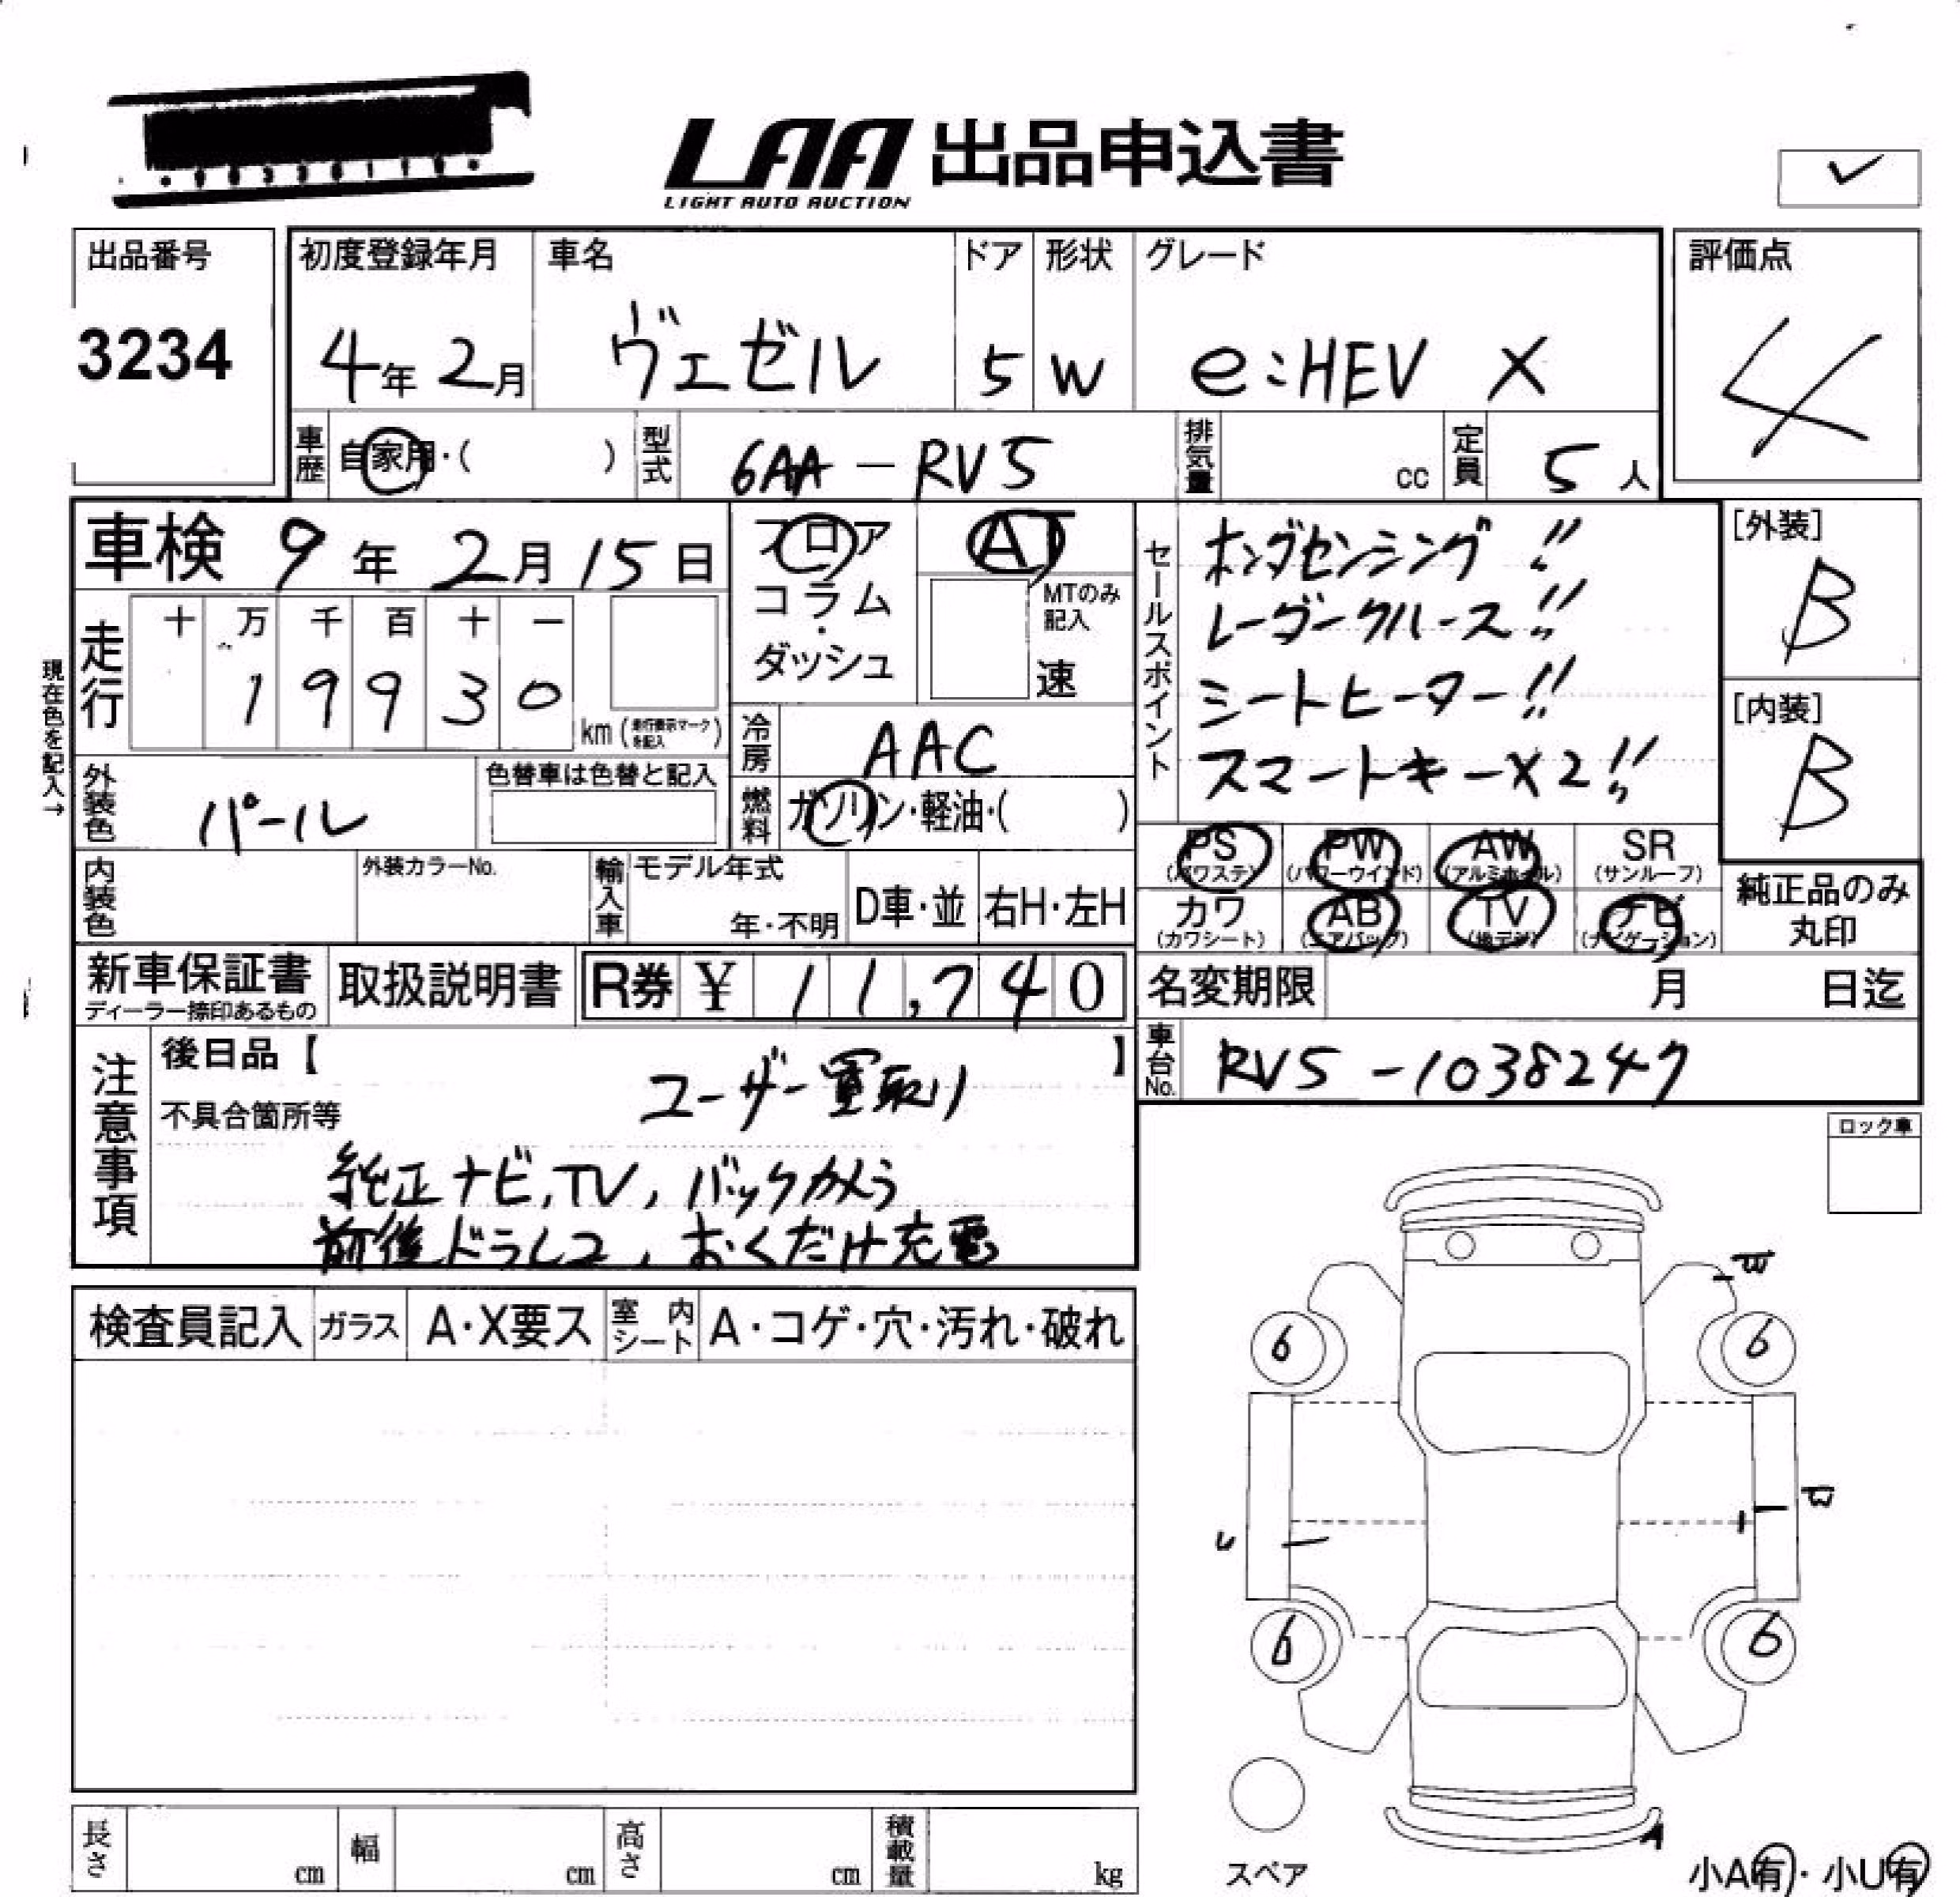 LAA 出品申込書
LIGHT AUTO AUCTION
✓
出品番号
3234
初度登録年月
4年 2月
車名
ヴェゼル
ドア
5
形状
W
グレード
e:HEV X
評価点
4
車歴
自家用・( )
型式
6AA-RV5
排気量
cc
定員
5 人
車検 9年 2月 15日
フロア
コラム
・
ダッシュ
AT
MTのみ
記入
速
セールスポイント
ホンダセンシング!!
レーダークルーズ!!
シートヒーター!!
スマートキーX2!!
[外装]
B
[内装]
B
現在色を記入→
走行
十 万 千 百 十 一
1 9 9 3 0
km (走行表示マークを記入)
冷房
AAC
外装色
パール
色替車は色替と記入
燃料
ガソリン・軽油・( )
PS (パワステ)
PW (パワーウインド)
AW (アルミホイル)
SR (サンルーフ)
カワ (カワシート)
AB (エアバッグ)
TV (地デジ)
ナビ (ナビゲーション)
純正品のみ
丸印
内装色
外装カラーNo.
輸入車
モデル年式
年・不明
D車・並
右H・左H
新車保証書
ディーラー捺印あるもの
取扱説明書
R券 ¥ 11,740
名変期限 月 日迄
車台No.
RV5-1038247
注意事項
後日品【 】
ユーザー買取り
不具合箇所等
純正ナビ,TV,バックカメラ
前後ドラレコ,おくだけ充電
ロック車
検査員記入
ガラス
A・X要ス
室内シート
A・コゲ・穴・汚れ・破れ
6
6
U
6
6
A
スペア
小A有・小U有
長さ cm
幅 cm
高さ cm
積載量 kg